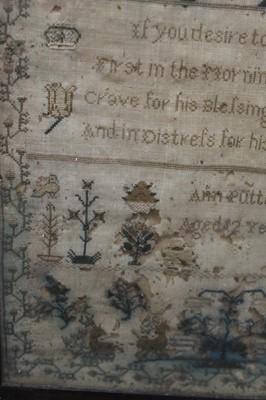 If you desire to
First in the Morning
Crave for his Blessing
And in Distress for his
Ann Putt
Aged 12 Ye